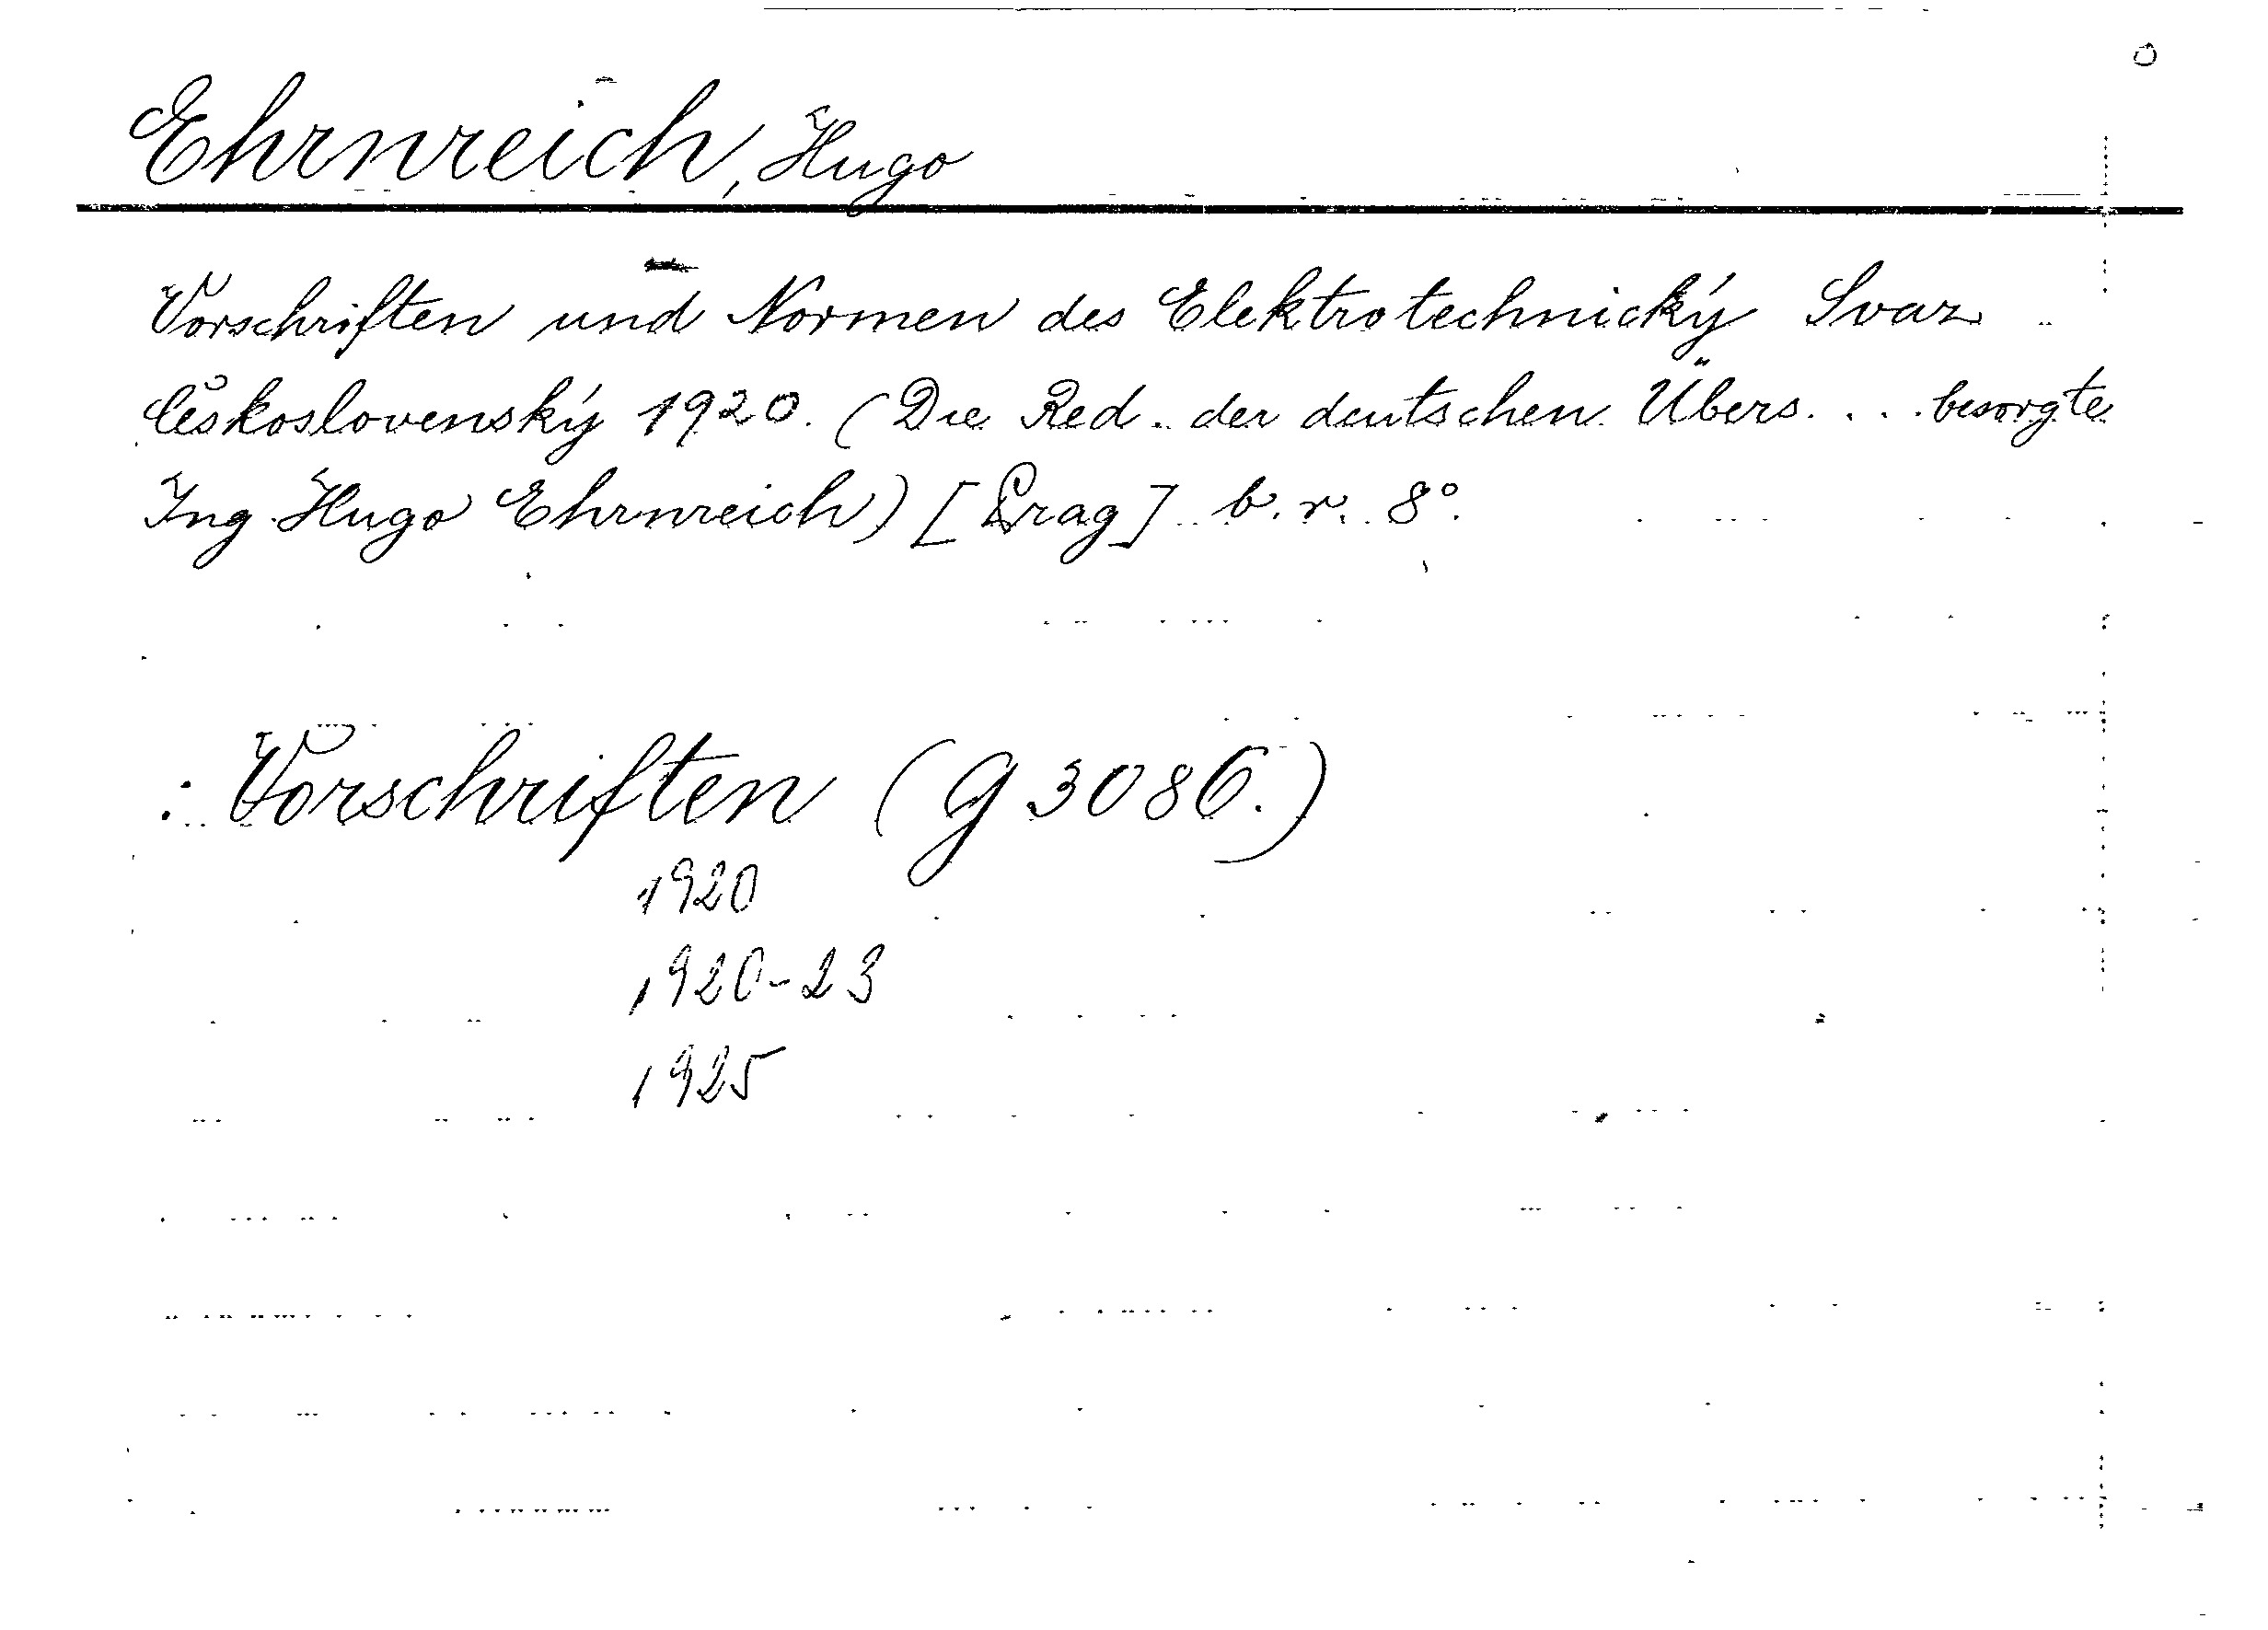 Ehrnreich, Hugo
Vorschriften und Normen des Elektrotechnický Svaz
Československý 1920. (Die Red. der deutschen Übers. . . . besorgte
Ing. Hugo Ehrnreich) [Prag] b. r. 8°.
: Vorschriften (G 3086.)
1920
1920-23
1925